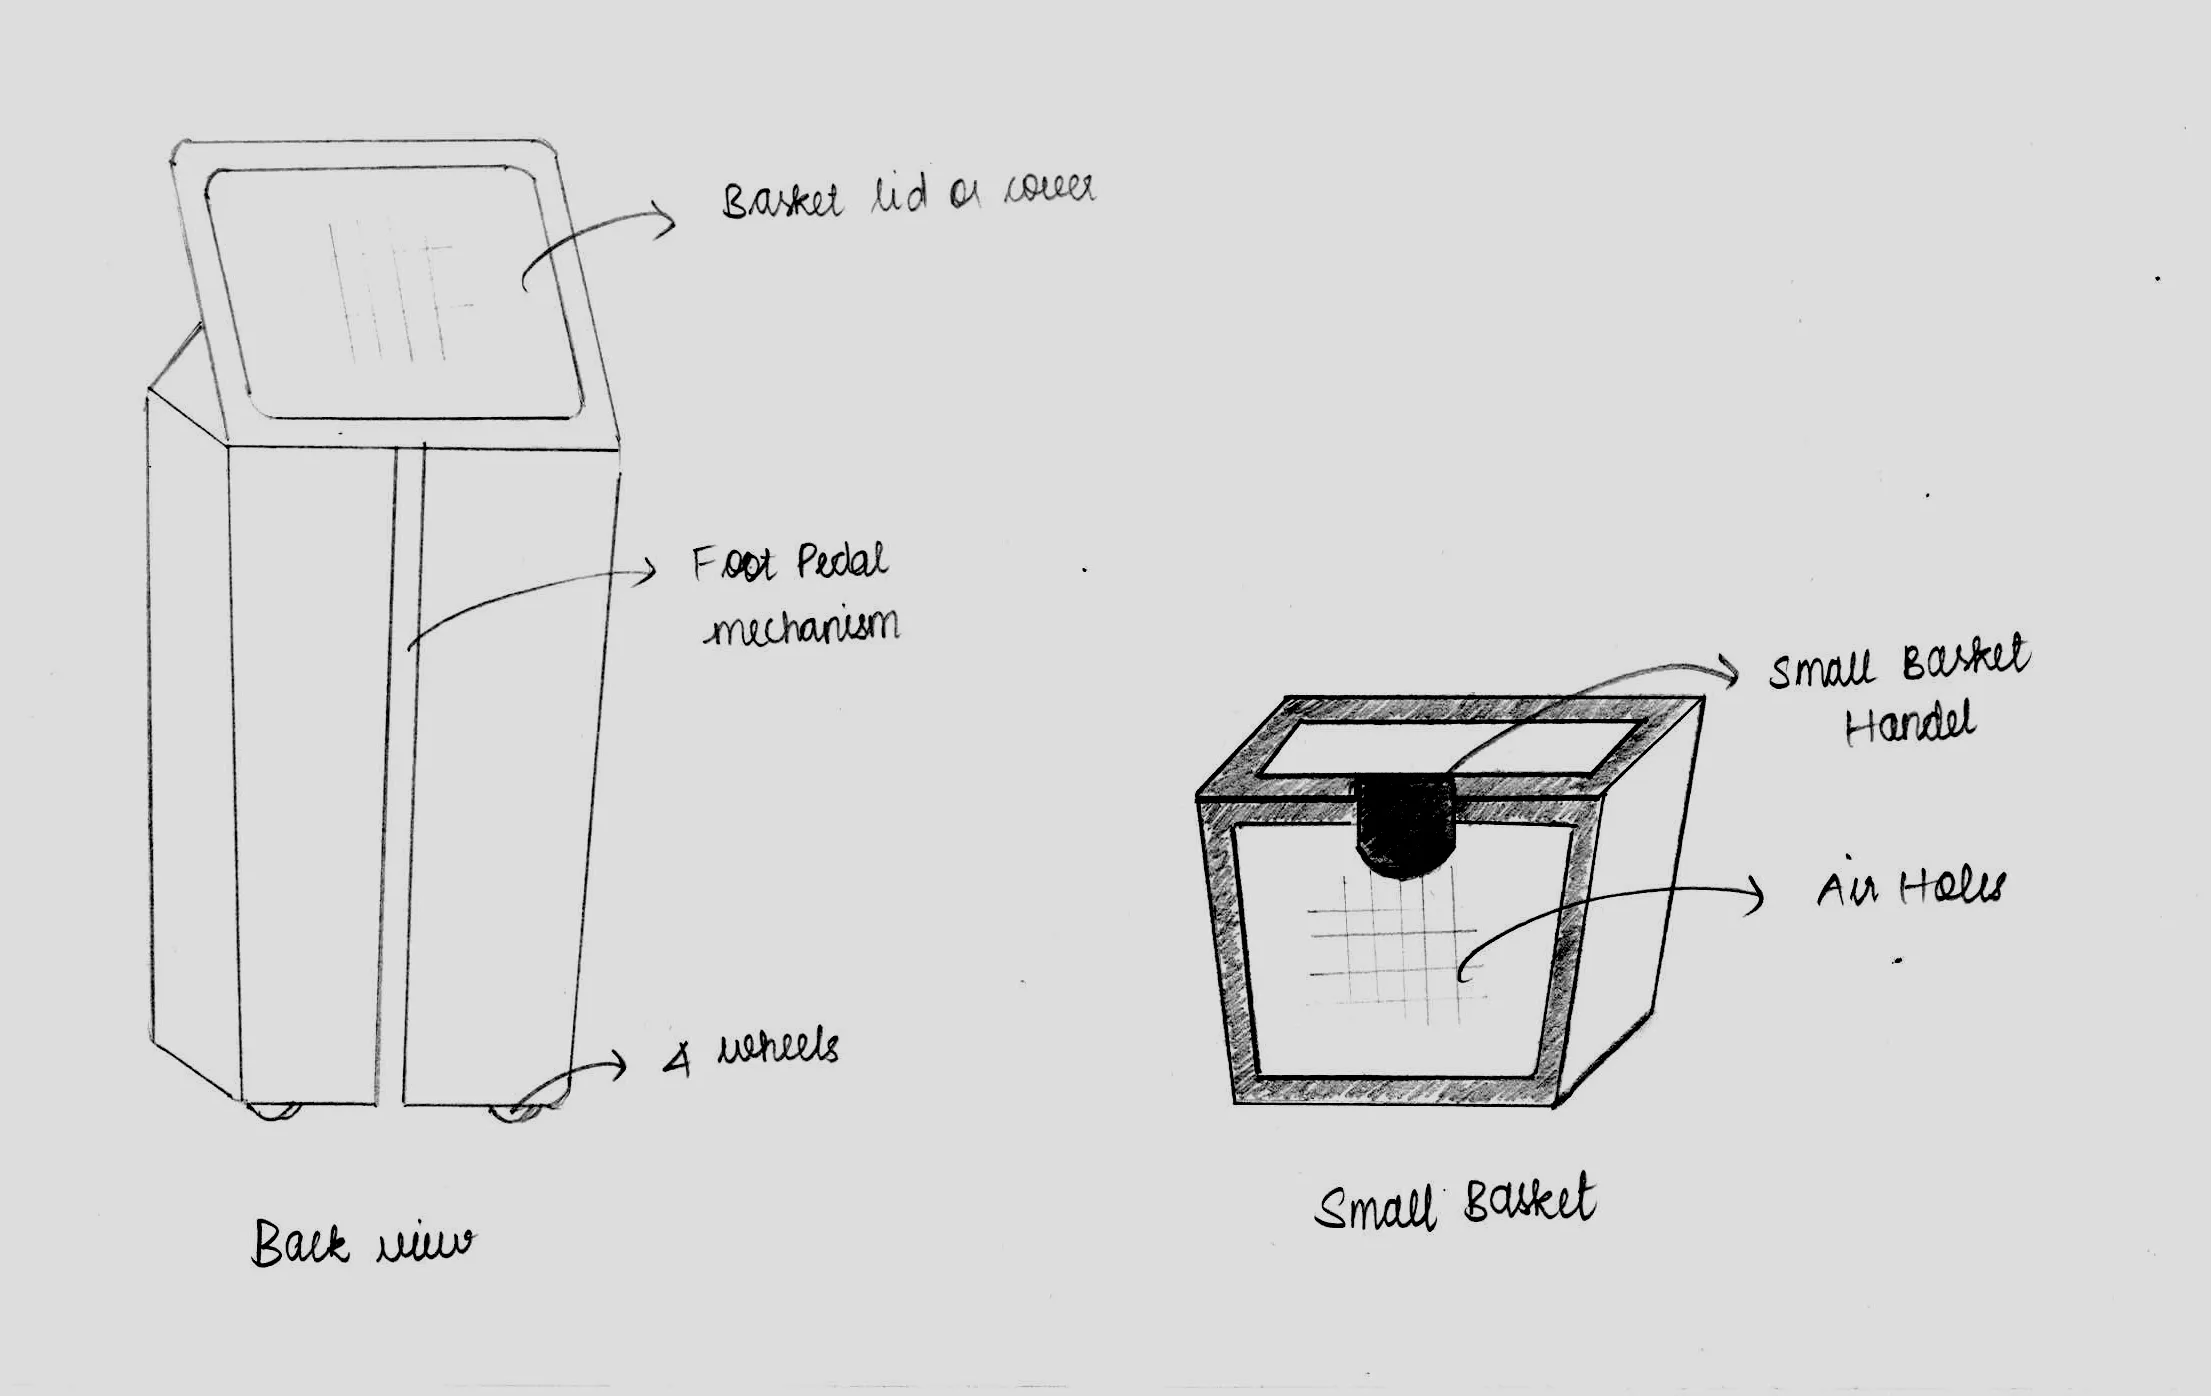 Basket lid or cover
Foot Pedal
mechanism
4 wheels
Back view
Small Basket
Handel
Air Holes
Small Basket